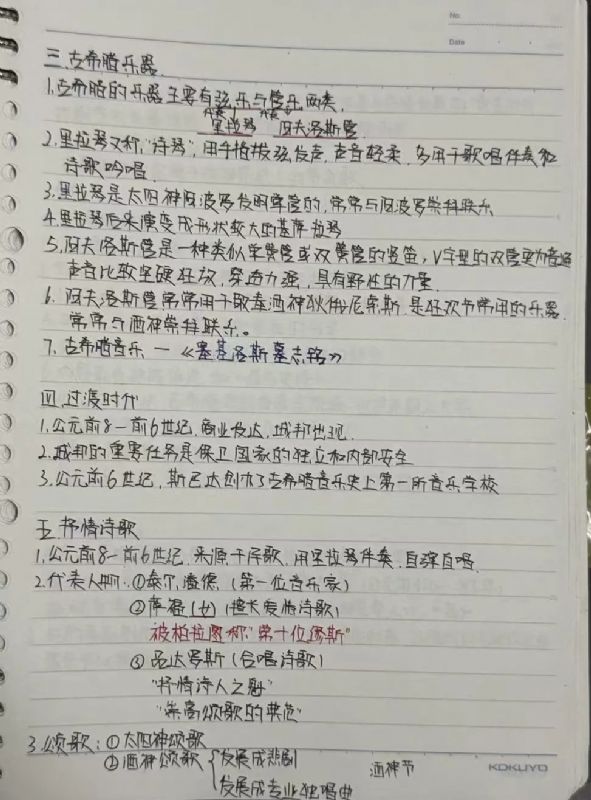 No.
Date
三.古希腊乐器
1.古希腊的乐器主要有弦乐与管乐两类.
里拉琴 阿夫洛斯管
2.里拉琴又称"诗琴",用手指拨弦发声,声音轻柔.多用于歌唱伴奏和
诗歌吟唱.
3.里拉琴是太阳神阿波罗发明掌管的,常常与阿波罗崇拜联系
4.里拉琴后来演变成形状较大的基萨拉琴
5.阿夫洛斯管是一种类似单簧管或双簧管的竖笛,V字型的双管更为普遍
声音比较坚硬狂放,穿透力强,具有野性的力量.
6.阿夫洛斯管常常用于歌奉酒神狄俄尼索斯.是狂欢节常用的乐器.
常常与酒神崇拜联系。
7.古希腊音乐一《塞基洛斯墓志铭》
四.过渡时代
1.公元前8-前6世纪.商业发达,城邦出现.
2.城邦的重要任务是保卫国家的独立和内部安全
3.公元前6世纪,斯巴达创办了古希腊音乐史上第一所音乐学校
五.抒情诗歌
1.公元前8-前6世纪.来源于民歌.用里拉琴伴奏.自弹自唱.
2.代表人物:①泰尔潘德(第一位音乐家)
②萨福(女)(擅长爱情诗歌)
被柏拉图称"第十位缪斯"
③品达罗斯(合唱诗歌)
"抒情诗人之魁"
"崇高颂歌的典范"
3.颂歌:①太阳神颂歌
②酒神颂歌{发展成悲剧 酒神节
发展成专业独唱曲
KOKUYO